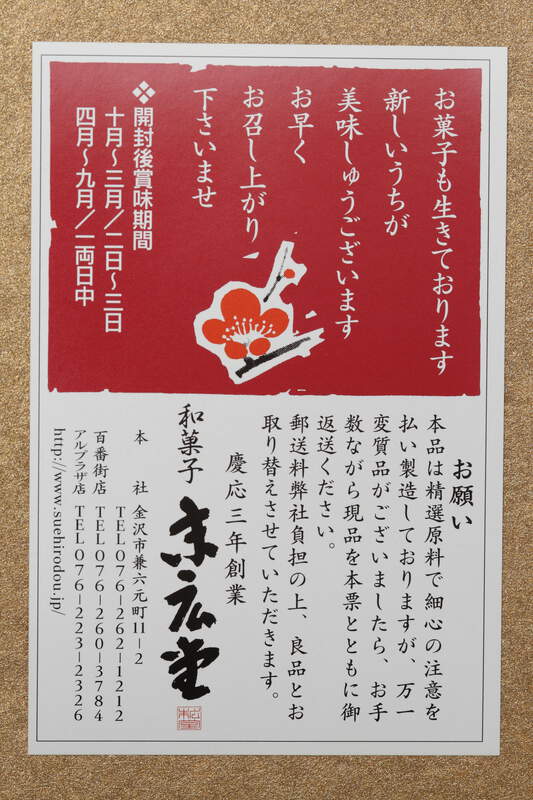 お菓子も生きております
新しいうちが
美味しゅうございます
お早く
お召し上がり
下さいませ
❖開封後賞味期間
十月～三月／二日～三日
四月～九月／一両日中
お願い
本品は精選原料で細心の注意を
払い製造しておりますが、万一
変質品がございましたら、お手
数ながら現品を本票とともに御
返送ください。
郵送料弊社負担の上、良品とお
取り替えさせていただきます。
慶応三年創業
和菓子 末広堂
本社 金沢市兼六元町11-2
TEL076-262-1212
百番街店 TEL076-260-3784
アルプラザ店 TEL076-223-2326
http://www.suehirodou.jp/